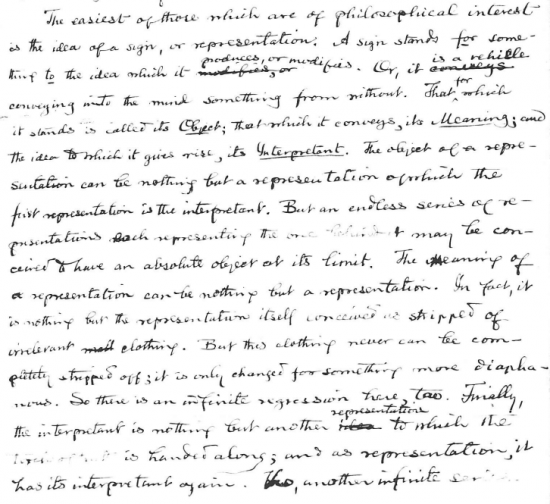 The easiest of those which are of philosophical interest
is the idea of a sign, or representation. A sign stands for some-
thing to the idea which it produces, or modifies. Or, it is a vehicle
conveying into the mind something from without. That for which
it stands is called its Object; that which it conveys, its Meaning; and
the idea to which it gives rise, its Interpretant. The object of a repre-
sentation can be nothing but a representation of which the
first representation is the interpretant. But an endless series of re-
presentations each representing the one behind it may be con-
ceived to have an absolute object at its limit. The Meaning of
a representation can be nothing but a representation. In fact, it
is nothing but the representation itself conceived as stripped of
irrelevant clothing. But this clothing never can be com-
pletely stripped off; it is only changed for something more diapha-
nous. So there is an infinite regression here, too. Finally,
the interpretant is nothing but another representation to which the
is handed along; and as representation, it
has its interpretant again. another infinite